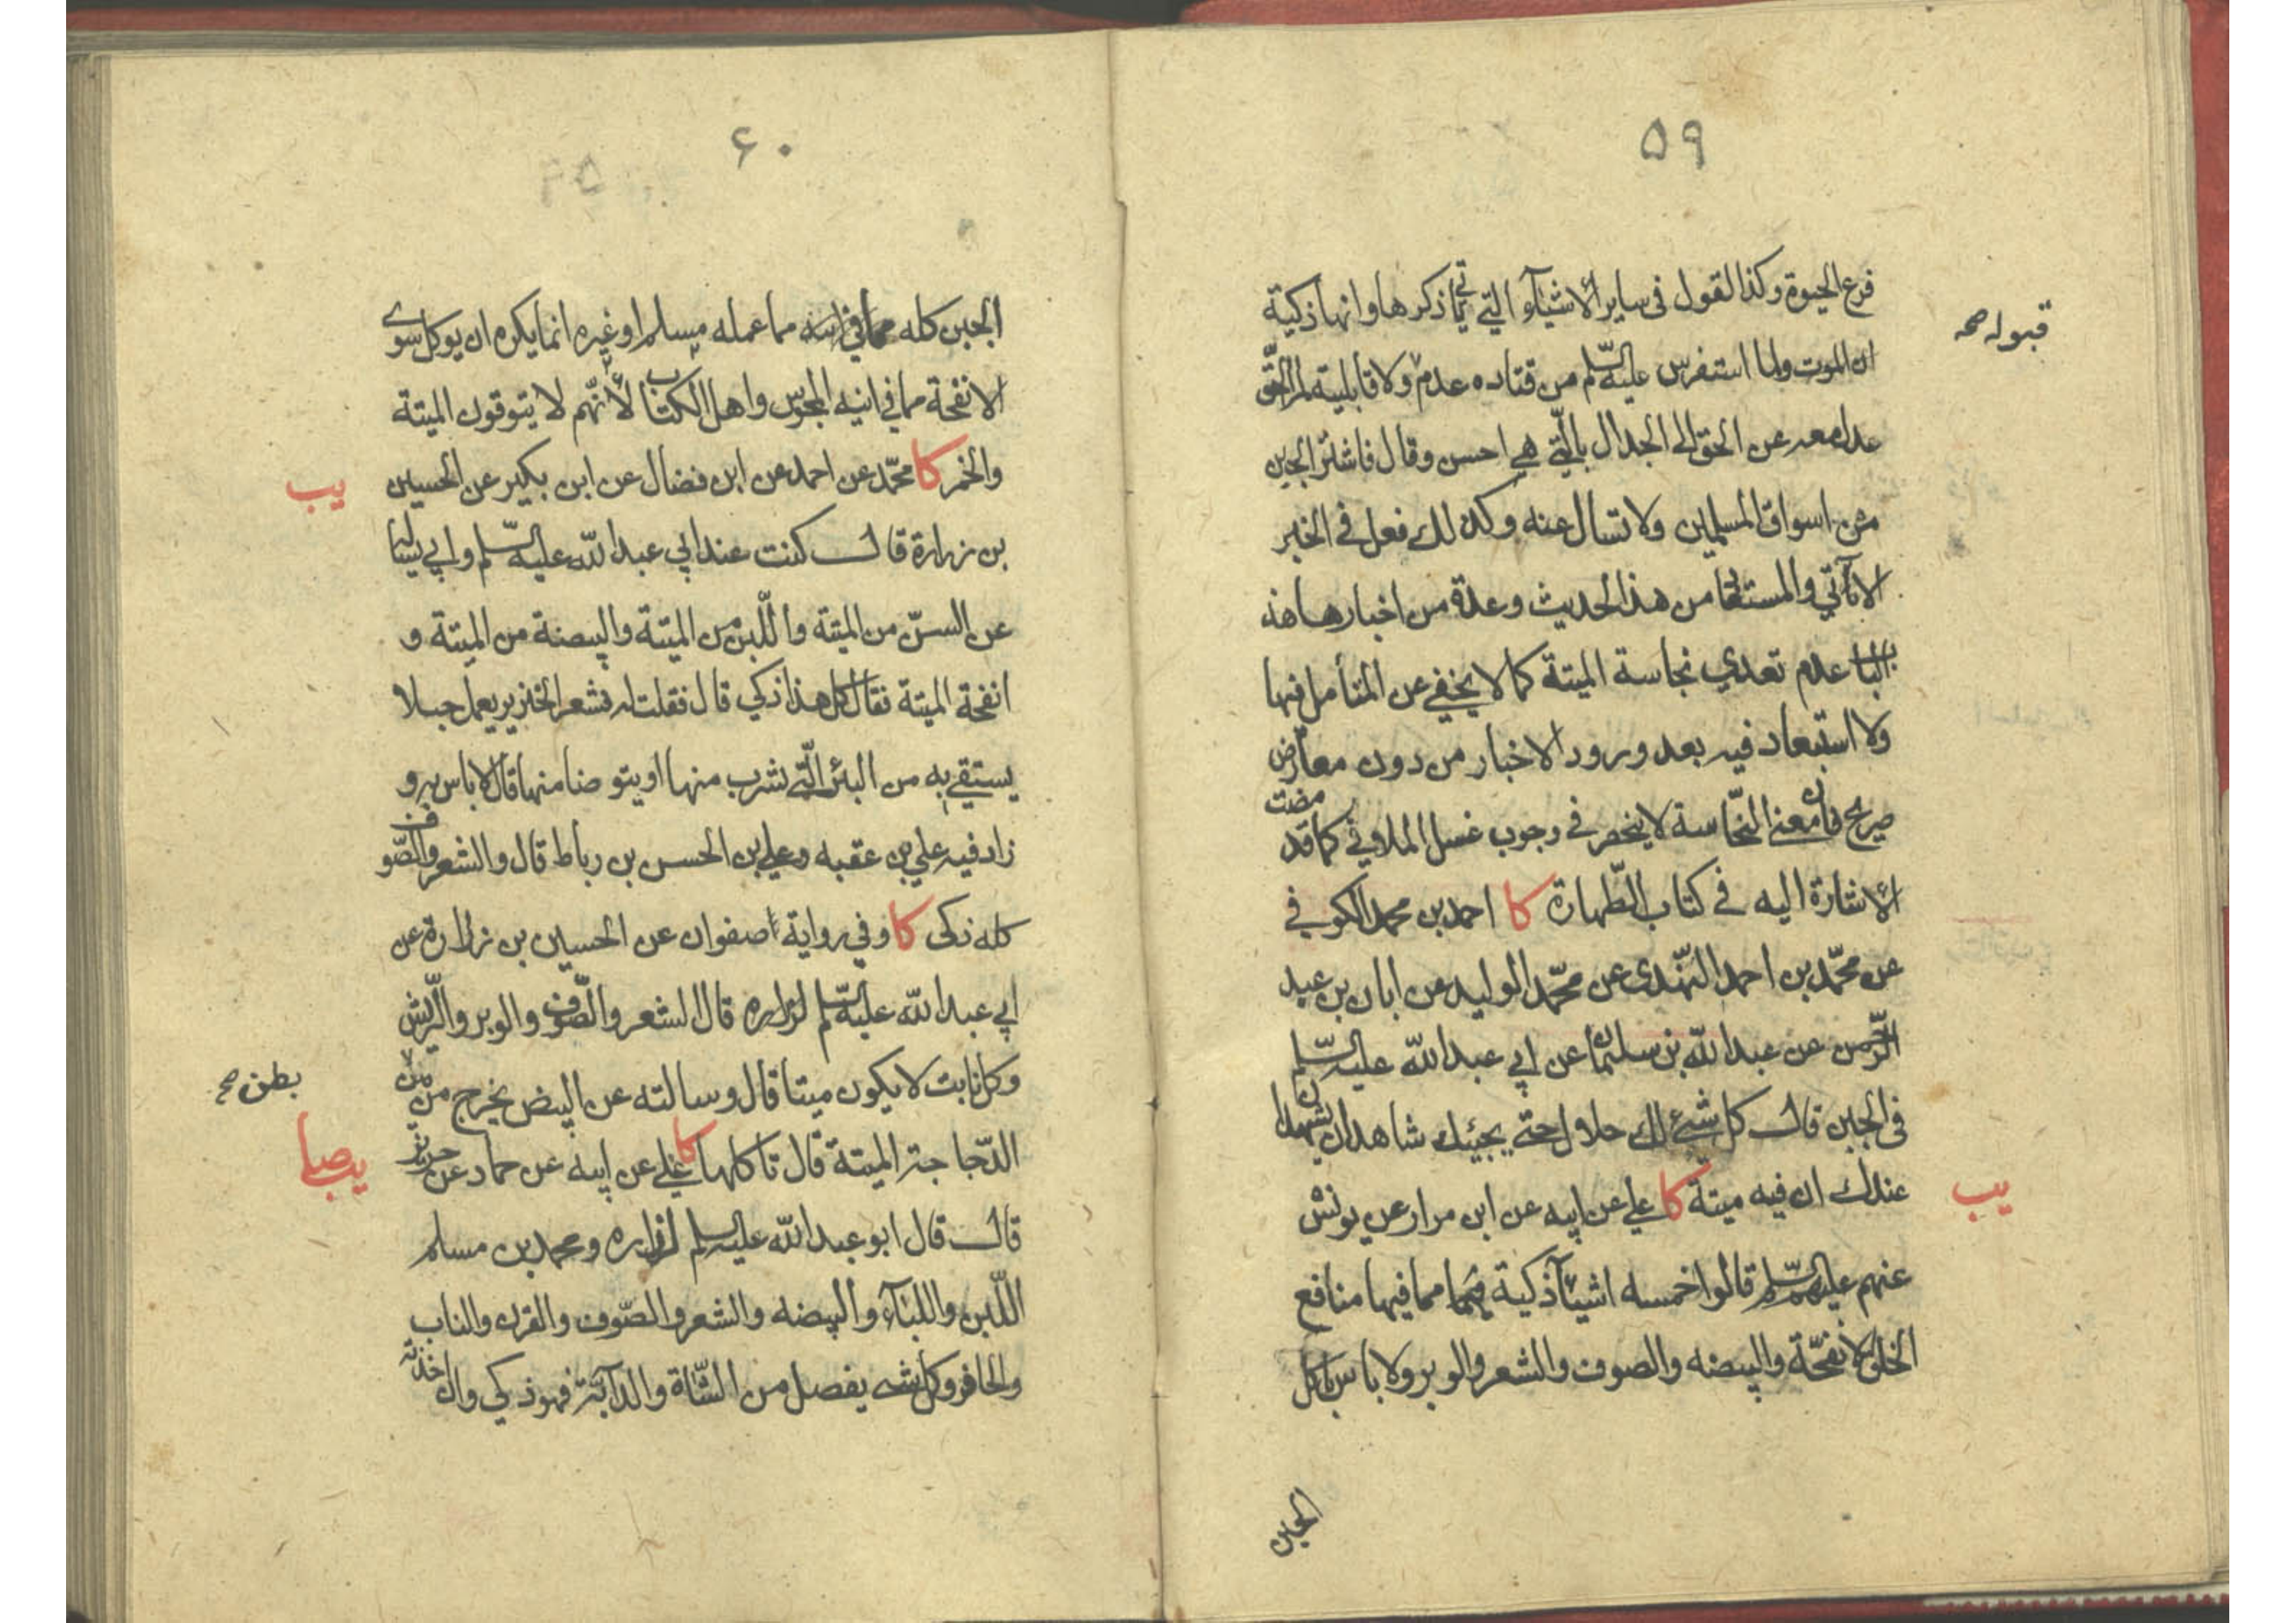 ٥٩
فرع الحيوة وكذا القول فى ساير الأشيآء التي يأتي ذكرها وانها ذكية
ان الموت ولما استفرس عليه السّلم من قتاده عدم ولا قابلية لمر الحق
قبوله صح
عدل معه عن الحق الى الجدال بالّتي هي احسن وقال فاشتر الجبن
من اسواق المسلمين ولا تسال عنه وكذلك فعل فى الخبر
الآتي والمستفا من هذا الحديث وعدة من اخبار هذه
الباب عدم تعدي نجاسة الميتة كما لا يخفي عن المتأمل فيها
ولا استبعاد فيه بعد ورود الاخبار من دون معارض
صريح فان معنى النّجاسة لا ينحصر في وجوب غسل الملاقي كما قد مضت
الأشارة اليه في كتاب الطّهارة كا احمد بن محمد الكوفي
عن محمّد بن احمد النهدى عن محمّد الوليد عن ابان بن عبد
الرّحمن عن عبد اللّه بن سليمان عن ابي عبد اللّه عليه السّلم
فى الجبن قال كل شيء لك حلال حتي يجيئك شاهدان يشهدان
عندك ان فيه ميتة كا علي عن ابيه عن ابن مرار عن يونس
يب
عنهم عليهم السّلم قالوا خمسه اشيآء ذكية مما فيها منافع
الخلق الانفحّة والبيضه والصوف والشعر والوبر ولا باس باكل
الجبن
٦٠
الجبن كله مما عمله مسلم او غيره انما يكره ان يوكل سوى
الانفحة مما في انيه المجوس واهل الكتاب لأنّهم لا يتوقون الميتة
والخمر كا محمّد عن احمد عن ابن فضال عن ابن بكير عن الحسين
يب
بن زرارة قال كنت عند ابي عبد اللّه عليه السّلم وابي يساله
عن السنّ من الميتة واللّبن من الميتة والبيضة من الميتة و
انفحة الميتة فقال كل هذا ذكي قال فقلت له فشعر الخنزير يعمل حبلا
يستقي به من البئر الّتي يشرب منها او يتوضا منها قال لا باس به و
زاد فيه علي بن عقبه وعلي بن الحسن بن رباط قال والشعر والصّوف
كله ذكى كا وفي رواية صفوان عن الحسين بن زرارة عن
ابي عبد اللّه عليه السّلم لزراره قال الشعر والصّوف والوبر والرّيش
وكل نابت لا يكون ميتا قال وسالته عن البيض يخرج من
بطن صح
الدّجاجة الميتة قال تاكلها كا علي عن ابيه عن حماد عن حريز
يب صا
قال قال ابو عبد اللّه عليه السلم لزراره ومحمد بن مسلم
اللّبن واللبآء والبيضه والشعر والصّوف والقرن والناب
والحافر وكل شيء يفصل من الشّاة والدآبّة فهو ذكي وان اخذته